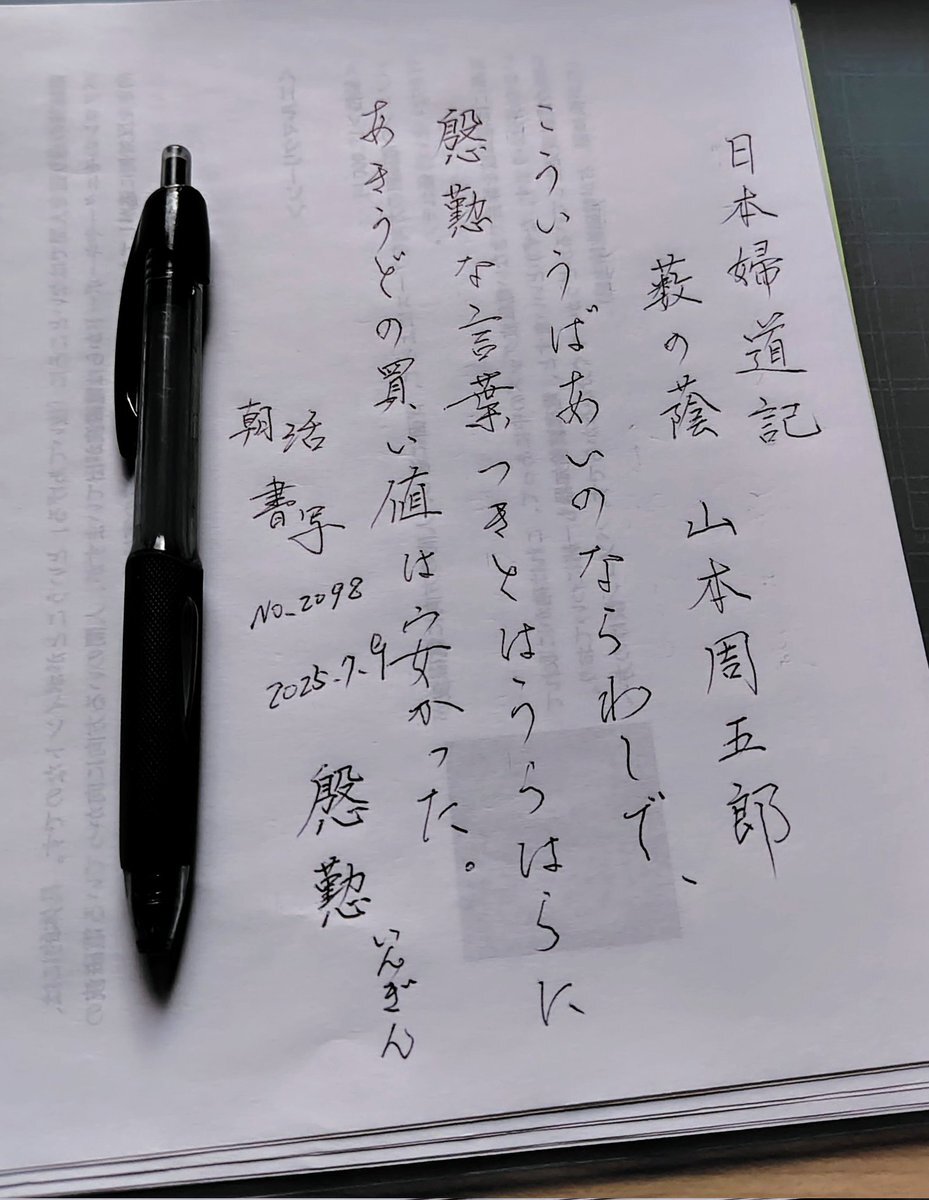 日本婦道記
藪の蔭　山本周五郎
こういうばあいのならわしで、
慇懃な言葉つきとはうらはらに
あきうどの買い値は安かった。
慇懃 いんぎん
朝活
書写
No.2098
2025.7.9